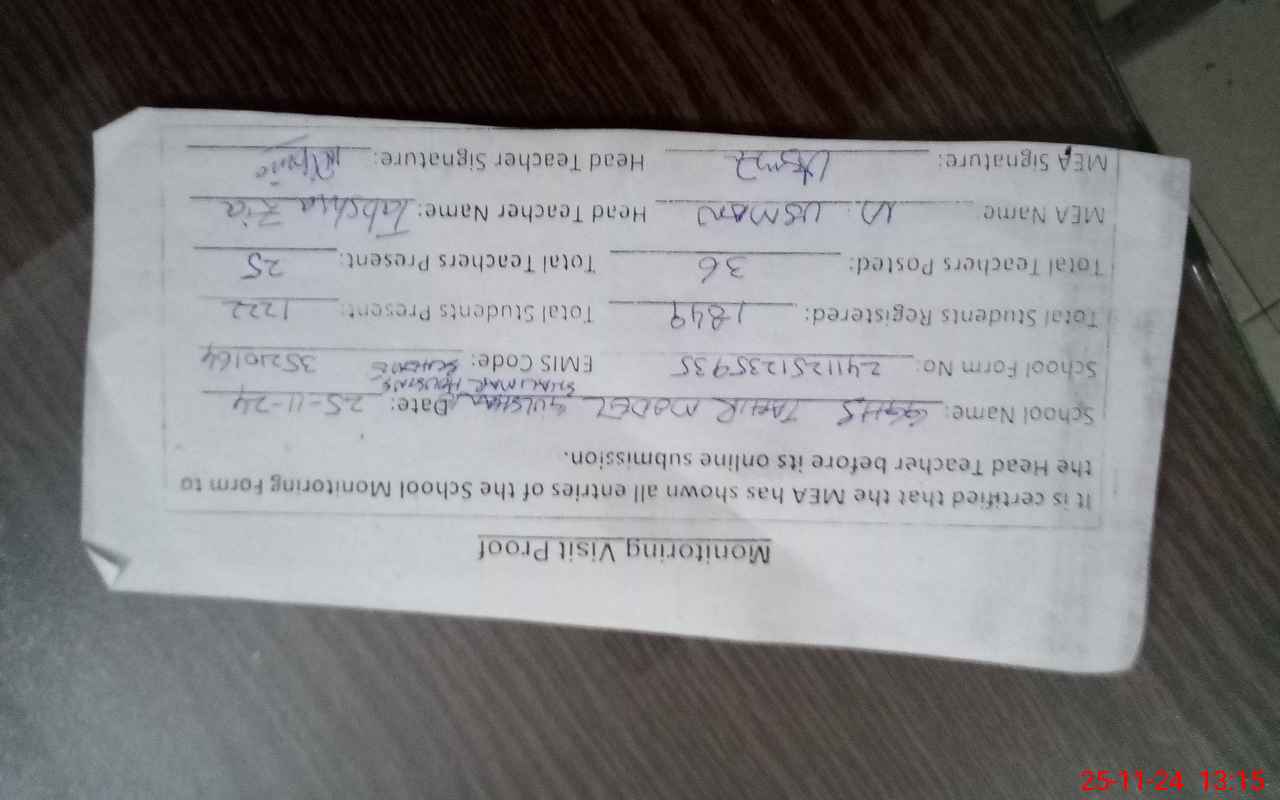 Monitoring Visit Proof
It is certified that the MEA has shown all entries of the School Monitoring Form to
the Head Teacher before its online submission.
School Name: GGHS TAHIR MODEL GULSHAN SHALIMAR HOUSING SCHEME Date: 25-11-24
School Form No: 2411251235935 EMIS Code: 35210164
Total Students Registered: 1849 Total Students Present: 1222
Total Teachers Posted: 36 Total Teachers Present: 25
MEA Name M. USMAN Head Teacher Name: Tabchra Zia
MEA Signature: Head Teacher Signature:
25-11-24 13:15